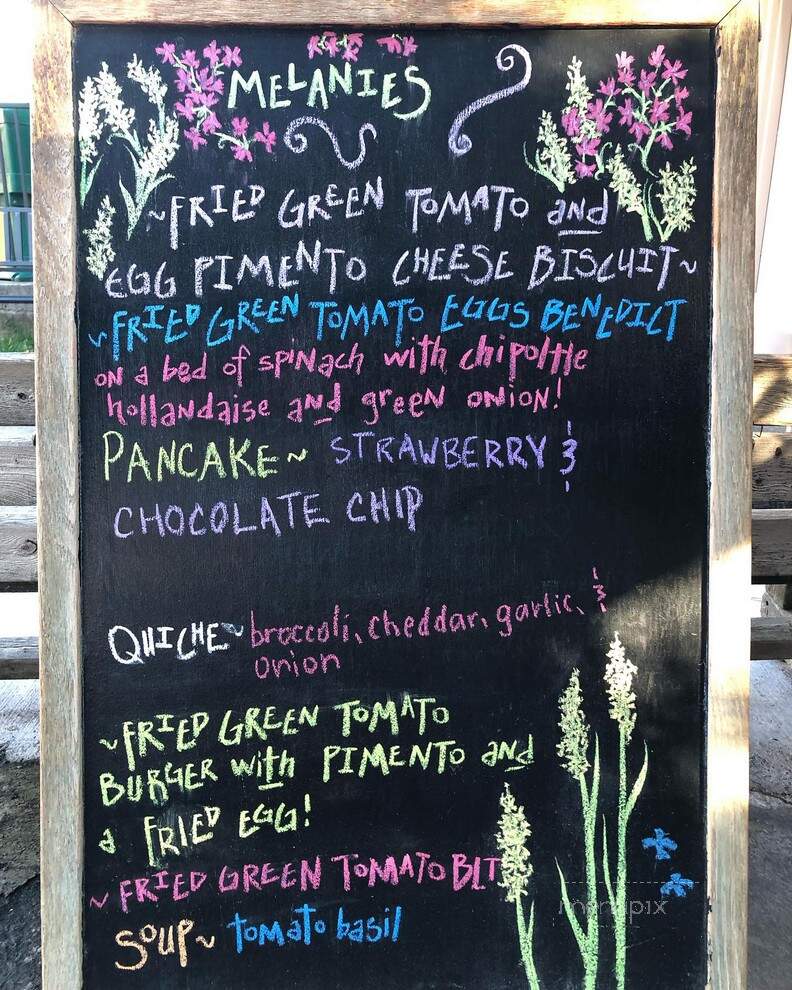 MELANIES
~FRIED GREEN TOMATO and
EGG PIMENTO CHEESE BISCUIT~
~FRIED GREEN TOMATO EGGS BENEDICT
on a bed of spinach with chipoltle
hollandaise and green onion!
PANCAKE~ STRAWBERRY &
CHOCOLATE CHIP
QUICHE~ broccoli, cheddar, garlic, &
onion
~FRIED GREEN TOMATO
BURGER with PIMENTO and
a FRIED EGG!
~FRIED GREEN TOMATO BLT
SOUP~ tomato basil
menupix